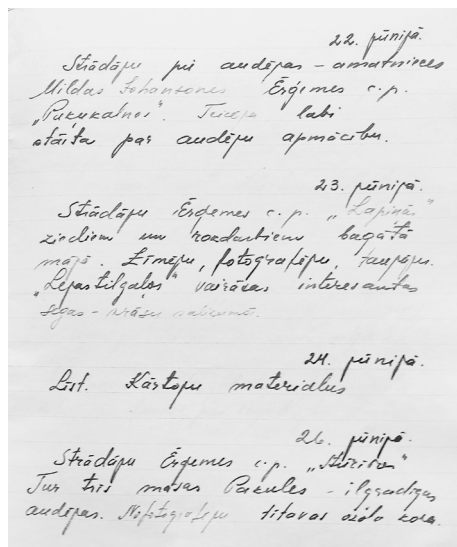 22. jūnijā.
Strādāju pie audējas – amatnieces
Mildas Johansones Ērģemes c.p.
„Puķukalnos". labi
stāsta par audēju apmācību.
23. jūnijā.
Strādāju Ērģemes c.p. „Lapiņās"
ziediem un rokdarbiem bagātā
mājā. Zīmēju, fotografēju,
vairākas interesantas
segas – krāsu salikumā.
24. jūnijā.
Līst. Kārtoju materiālus
26. jūnijā.
Strādāju Ērģemes c.p.
Tur trīs māsas Pakules – ilggadīgas
audējas. Nofotografēju stāvas ozola koka.